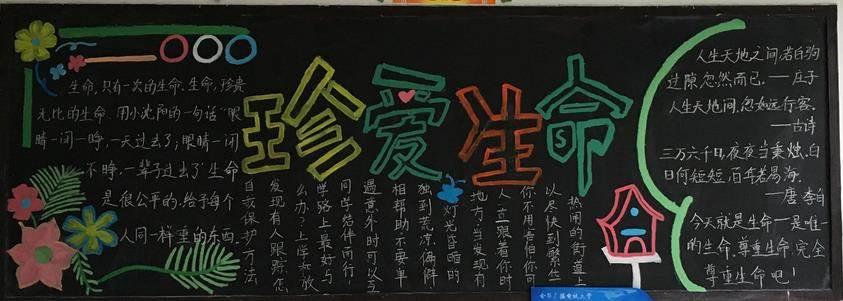 珍爱生命
生命,只有一次的生命,生命,珍贵
无比的生命.用小沈阳的一句话"眼
睛一闭一睁,一天过去了;眼睛一闭
不睁,一辈子过去了"生命
是很公平的,给予每个
人同一样重的东西.
自我保护方法
发现有人跟踪怎
么办?上学,放
学路上最好与
同学结伴而行,
遇意外时可以互
相帮助不要单
独到荒凉、偏僻
灯光昏暗的
地方,当发现有
人跟着你时
你不用害怕你可
以尽快到繁华
热闹的街道上
人生天地之间,若白驹
过隙,忽然而已.——庄子
人生天地间,忽如远行客.
——古诗
三万六千日,夜夜当秉烛.白
日何短短,百年若易海.
——唐 李白
今天就是生命——是唯一
的生命.尊重生命,完全
尊重生命吧!
广播电视大学